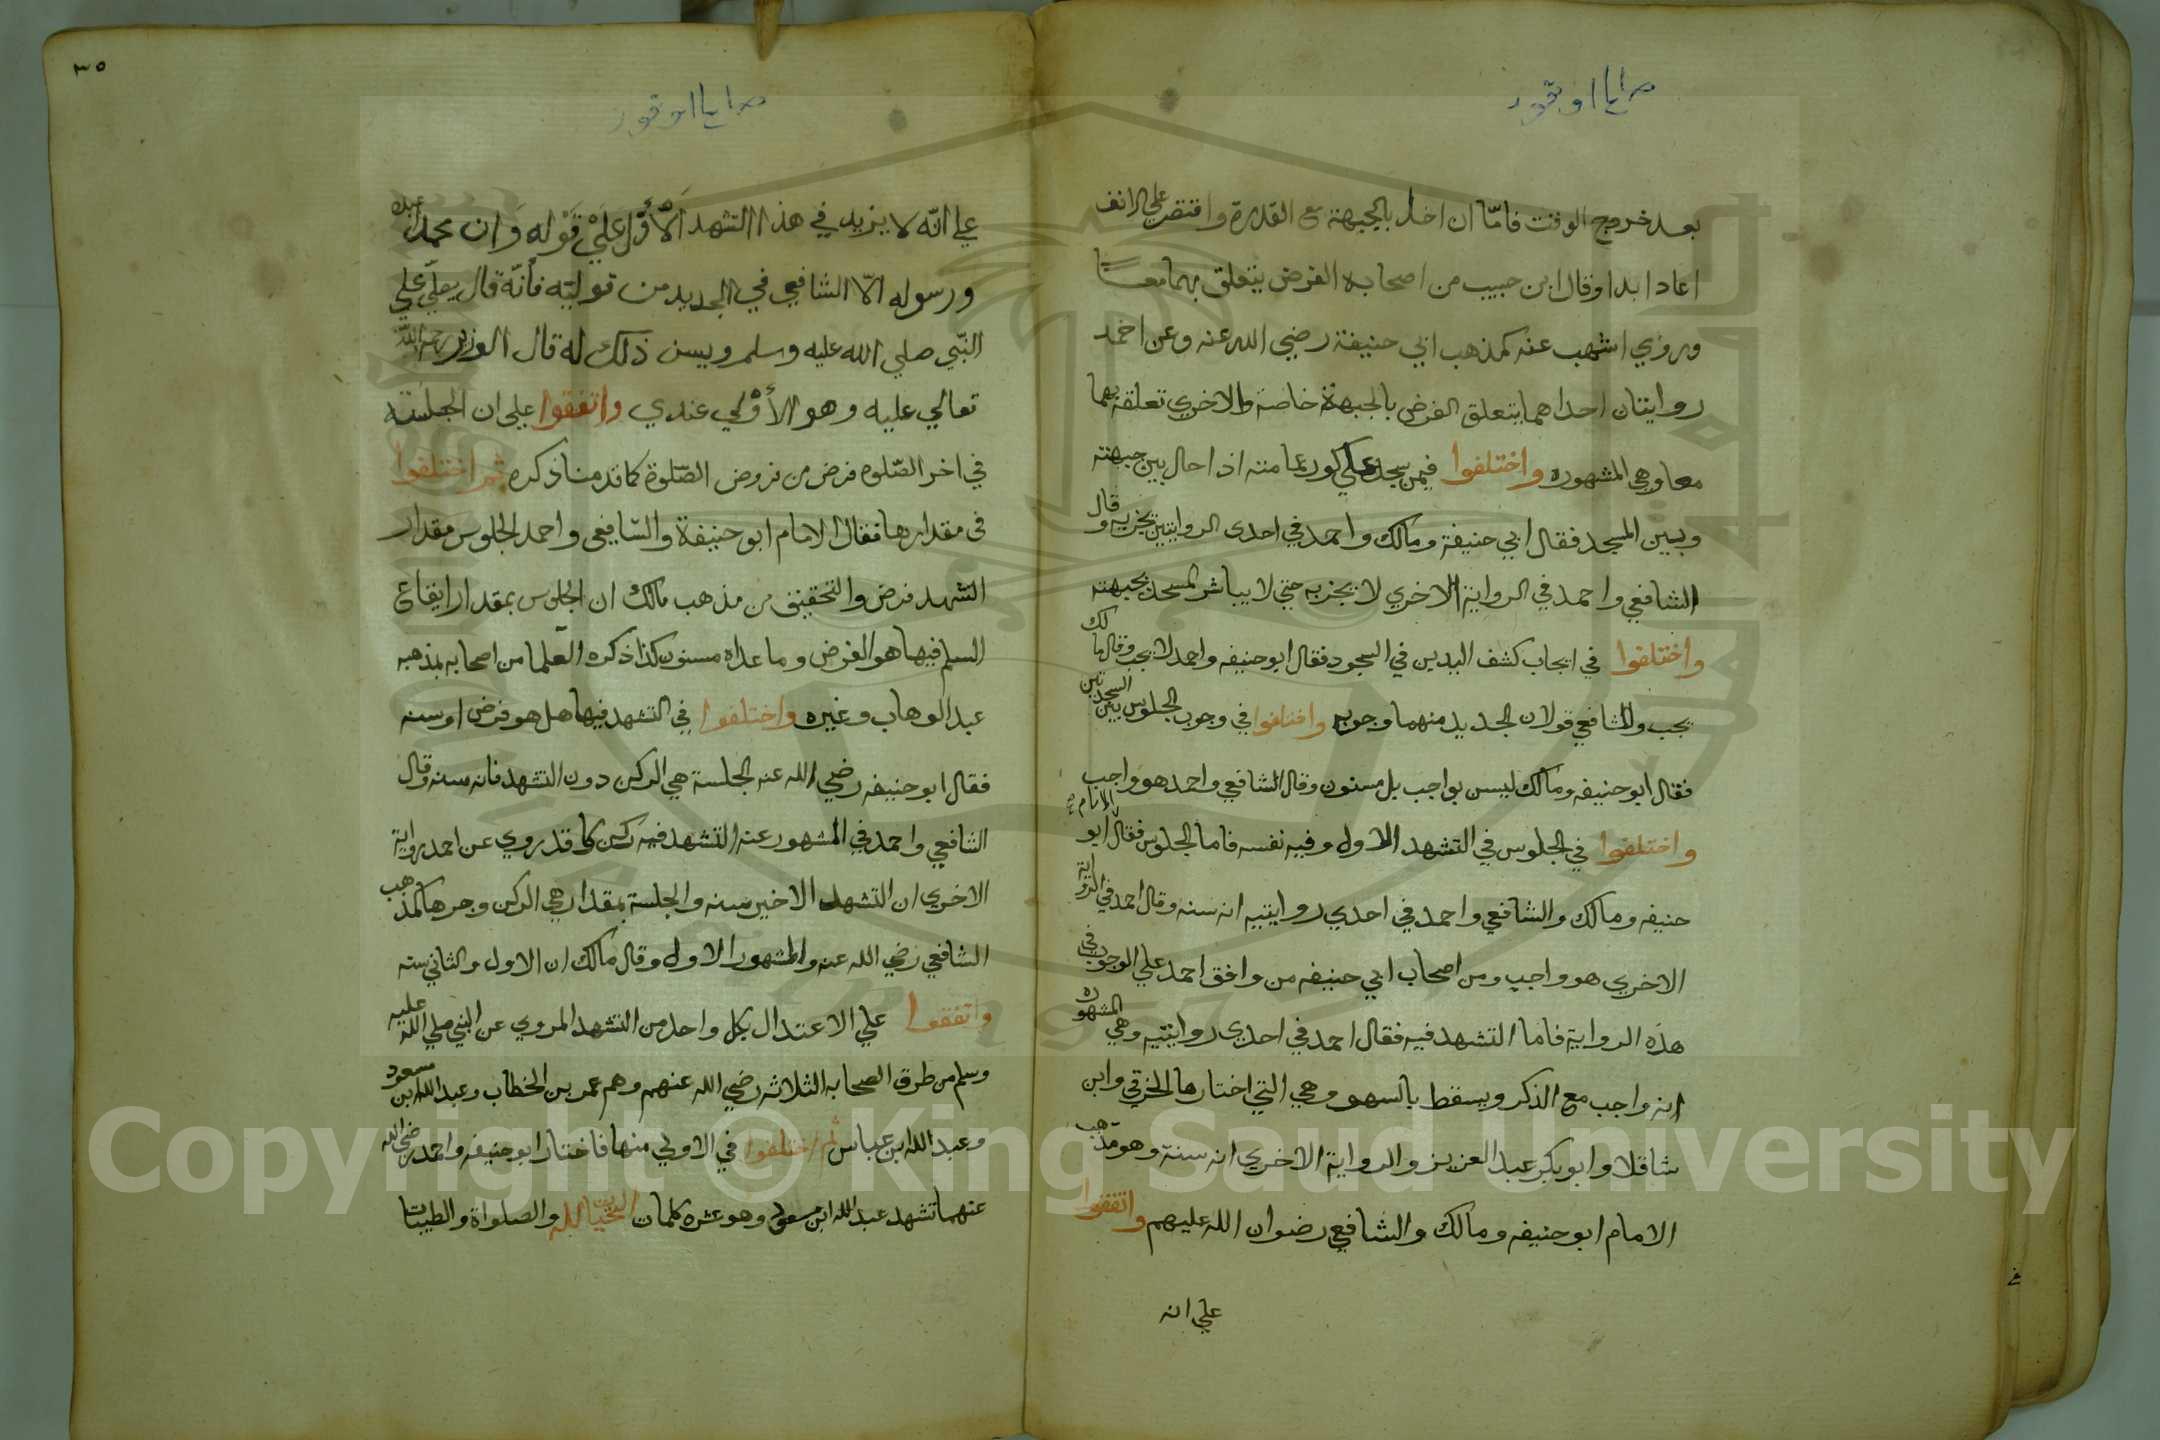 بعد خروج الوقت فامّا ان اخل بالجبهة مع القدرة واقتصر علي الانف
اعاد ابدا وقال ابن حبيب من اصحابه الفرض يتعلق بهما معا
وروي اشهب عنه كمذهب ابي حنيفة رضي الله عنه وعن احمد
روايتان احداهما يتعلق الفرض بالجبهة خاصة والاخري تعلقه بهما
معا وهي المشهوره واختلفوا فيمن سجد علي كور عمامته اذا حال بين جبهته
وبين المسجد فقال ابي حنيفة ومالك واحمد في احدى الروايتين يجزيه وقال
الشافعي واحمد في الرواية الاخري لا يجزيه حتي لا يباشر المسجد بجبهته
واختلفوا في ايجاب كشف اليدين في السجود فقال ابو حنيفه واحمد لا يجب وقال مالك
يجب والشافعي قولان الجديد منهما وجوبه واختلفوا في وجوب الجلوس بين السجدتين
فقال ابو حنيفه ومالك ليس بواجب بل مسنون وقال الشافعي واحمد هو واجب
واختلفوا في الجلوس في التشهد الاول وفيه نفسه فاما الجلوس فقال الامام ابو
حنيفه ومالك والشافعي واحمد في احدي روايتيه انه سنه وقال احمد في الرواية
الاخري هو واجب ومن اصحاب ابي حنيفه من وافق احمد علي الوجوب في
هذه الرواية فاما التشهد فيه فقال احمد في احدى روايتيه وهي المشهوره
انه واجب مع الذكر ويسقط بالسهو وهي التي اختارها الخرقي وابن
شاقلا وابو بكر عبد العزيز والرواية الاخري انه سنة وهو مذهب
الامام ابو حنيفه ومالك والشافعي رضوان الله عليهم واتفقوا
علي انه
٣٥
علي انّه لا يزيد في هذا التشهد الأوّل علي قوله وان محمدا عبده
ورسوله الّا الشافعي في الجديد من قوليه فانّه قال يصلّي علي
النّبي صلي الله عليه وسلم ويسن ذلك له قال الوزير رحمة الله
تعالي عليه وهو الأولي عندي واتفقوا علي ان الجلسة
في اخر الصّلوه فرض من فروض الصّلوة كما قدمنا ذكره ثم اختلفوا
في مقدارها فقال الامام ابو حنيفة والشافعي واحمد الجلوس مقدار
التشهد فرض والتحقيق من مذهب مالك ان الجلوس بمقدار ايقاع
السلم فيها هو الفرض وما عداه مسنون كذا ذكره العلما من اصحابه بمذهبه
عبد الوهاب وغيره واختلفوا في التشهد فيها هل هو فرض او سنه
فقال ابو حنيفه رضي الله عنه الجلسة هي الركن دون التشهد فانه سنه وقال
الشافعي واحمد في المشهور عنه التشهد فيه ركن كا وقد روي عن احمد رواية
الاخري ان التشهد الاخير سنه والجلسة بمقداره هي الركن وحدها كمذهب
الشافعي رضي الله عنه والمشهور الاول وقال مالك ان الاول والثاني سنه
واتفقوا علي الاعتدال بكل واحد من التشهد المروي عن النبي صلي الله عليه
وسلم من طرق الصحابه الثلاثه رضي الله عنهم وهم عمر بن الخطاب وعبد الله ابن مسعود
وعبد الله ابن عباس ثم اختلفوا في الاولي منها فاختار ابو حنيفه واحمد رضي الله
عنهما تشهد عبد الله ابن مسعود وهو عشره كلمات التحيات لله والصلواة والطيبات
Copyright © King Saud University